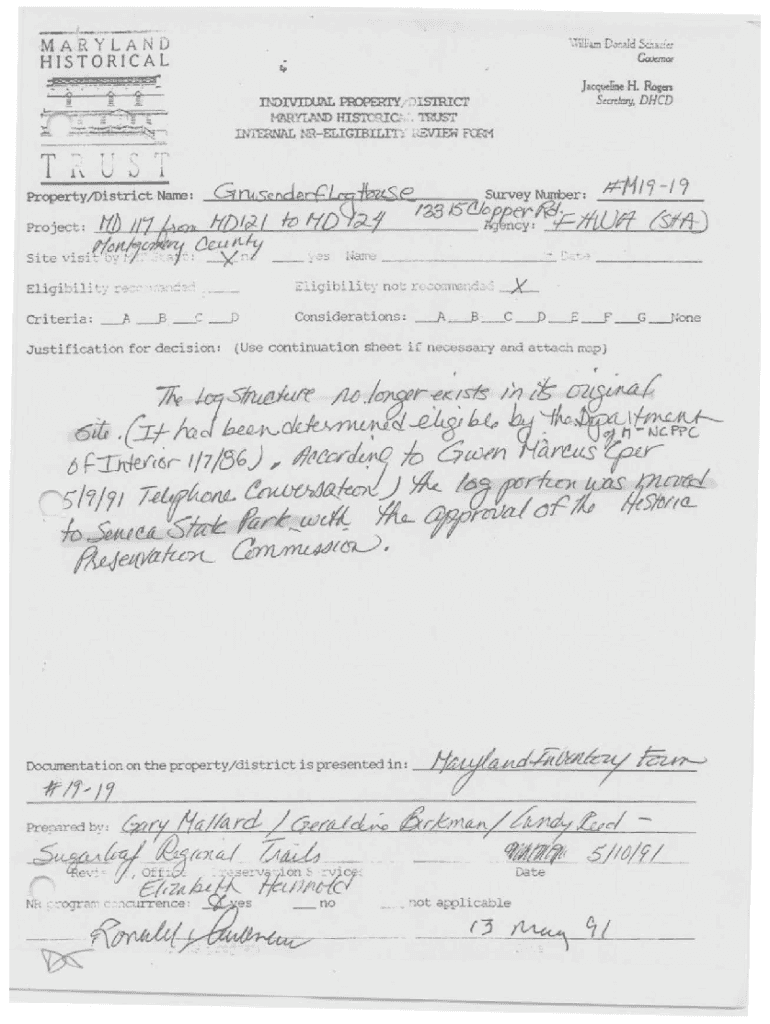 MARYLAND
HISTORICAL
TRUST
William Donald Schaefer
Governor
Jacqueline H. Rogers
Secretary, DHCD
INDIVIDUAL PROPERTY/DISTRICT
MARYLAND HISTORICAL TRUST
INTERNAL NR-ELIGIBILITY REVIEW FORM
Property/District Name: Grusendorf Log House Survey Number: #M19-19
13315 Clopper Rd.
Project: MD 117 from MD121 to MD 124 Agency: FHWA (SHA)
Montgomery County
Site visit by MHT Staff: X no ___ yes Name ___ Date ___
Eligibility recommended ___ Eligibility not recommended X
Criteria: __A __B __C __D Considerations: __A __B __C __D __E __F __G __None
Justification for decision: (Use continuation sheet if necessary and attach map)
The Log Structure no longer exists in its original
site. (It had been determined eligible by the Department
of Interior 1/7/86). According to Gwen Marcus of M-NCPPC (per
5/9/91 Telephone Conversation) the log portion was moved
to Seneca State Park with the approval of the Historic
Preservation Commission.
Documentation on the property/district is presented in: Maryland Inventory Form
#19-19
Prepared by: Gary Mallard / Geraldine Birkman/
Sugarloaf Regional Trails
5/10/91
Office Preservation Services Date
Elizabeth Hannold
NR program concurrence: X yes __ no __ not applicable
Ronald
13 May 91